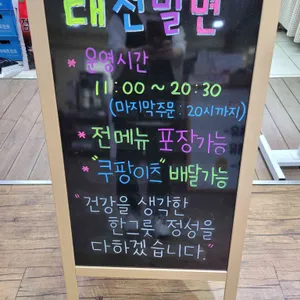 대전밀면
* 운영시간
11:00 ~ 20:30
(마지막주문 : 20시까지)
* 전메뉴 포장가능
* "쿠팡이츠" 배달가능
"건강을 생각한
한그릇 정성을
다하겠습니다."